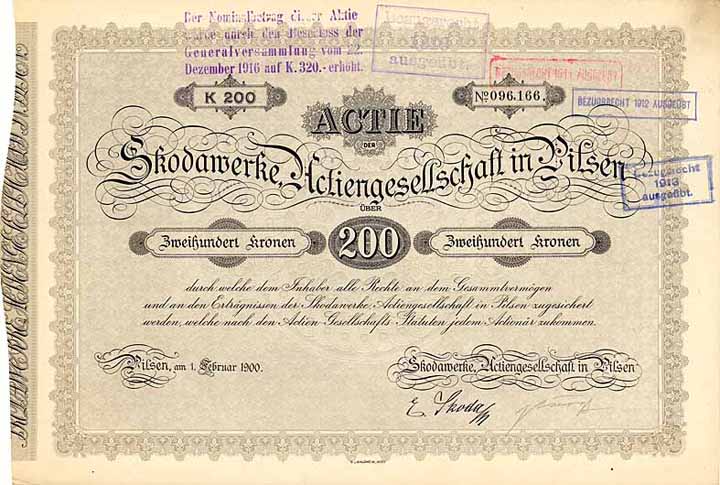 Der Nominalbetrag dieser Aktie
wurde durch den Beschluss der
Generalversammlung vom 22.
Dezember 1916 auf K. 320.- erhöht.
ausgeübt.
BEZUGSRECHT 1911 AUSGEÜBT
BEZUGSRECHT 1912 AUSGEÜBT
K 200
No. 096,166.
ACTIE
DER
Skodawerke, Actiengesellschaft in Pilsen
Bezugsrecht
1913
ausgeübt.
ÜBER
Zweihundert Kronen
200
Zweihundert Kronen
durch welche dem Inhaber alle Rechte an dem Gesammtvermögen
und an den Erträgnissen der Skodawerke, Actiengesellschaft in Pilsen zugesichert
werden, welche nach den Actien-Gesellschafts-Statuten jedem Actionär zukommen.
Pilsen, am 1. Februar 1900.
Skodawerke, Actiengesellschaft in Pilsen
E. Skoda